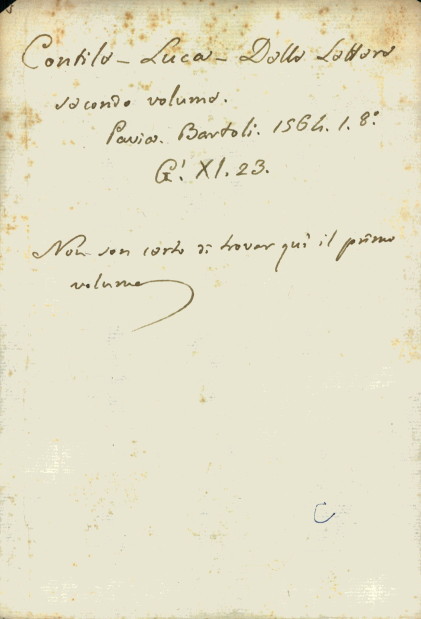 Contile - Luca - Delle Lettere
secondo volume.
Pavia. Bartoli. 1564. 1. 8°
G'. XI. 23.
Non son certo di trovar quì il primo
volume
C